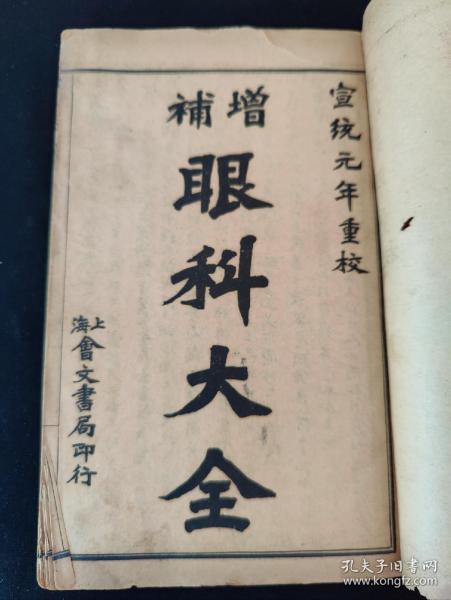 宣統元年重校
增補
眼科大全
上海會文書局印行
孔夫子旧书网
kongfz.com